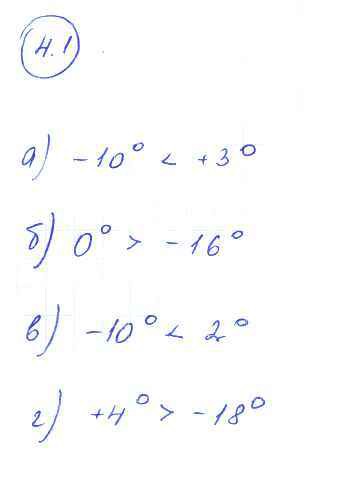 4.1
а) -10° < +3°
б) 0° > -16°
в) -10° < 2°
г) +4° > -18°